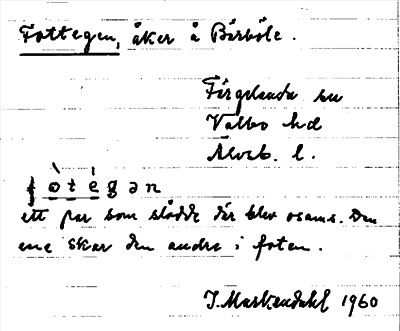 Fottegen, åker å Bärböle.
Färgelanda sn
Valbo hd
Älvsb. l.
fòtégən
ett par som slådde där blev osams. Den
ene skar den andre i foten.
J. Markendahl 1960